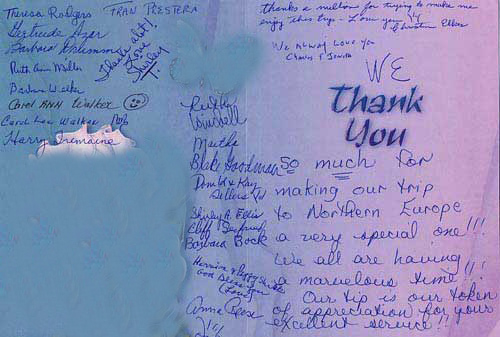 Theresa Rodgers
Fran Prestera
Gertrude Azar
Barbara
Ruth Ann Miller
Barbara Walker
Carol Ann Walker
Carol Lee Walker
Harry Tremaine
Thanks alot!
Love
Shirley
Thanks a million for trying to make me
enjoy this trip - Love you
Christine
We Always Love You
Charles & 
WE
Thank
You
so much for
making our trip
to Northern Europe
a very special one!!!
We all are having
a marvelous time!!!
Our tip is our token
of appreciation for your
excellent service!!
Martha
Blake Goodman
Donald & Kay
Sellers
Shirley A.
Cliff
Barbara Bock
Herman & Peggy
God Bless you
(Love)
Anna